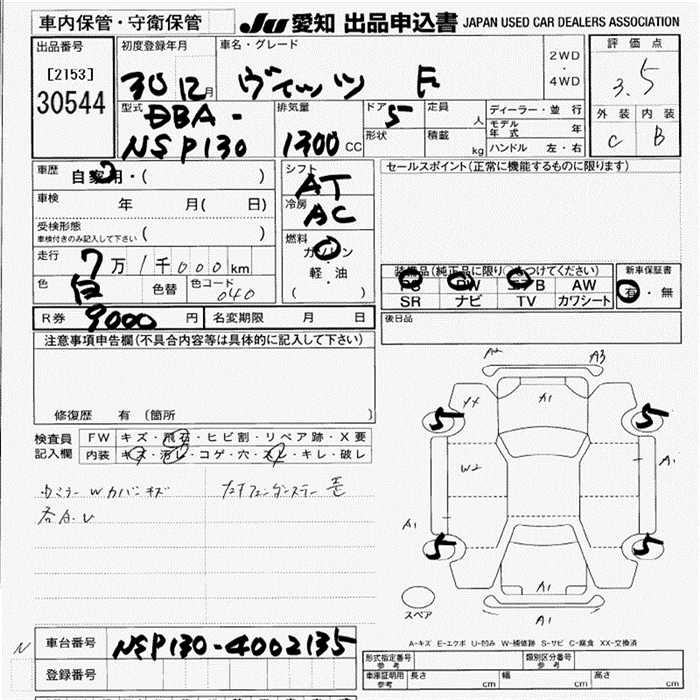 車内保管・守衛保管
JU 愛知 出品申込書 JAPAN USED CAR DEALERS ASSOCIATION
出品番号
[2153]
30544
初度登録年月
30 12月
車名・グレード
ヴィッツ F
2WD
・
4WD
評価点
3.5
外装 内装
C B
型式
DBA-
NSP130
排気量
1300 cc
ドア
5
形状
定員
人
積載
kg
ディーラー・並行
モデル年式 年
ハンドル 左・右
車歴
自家用・( )
車検
年 月( 日)
受検形態
車検付きのみ記入して下さい ( )
走行
7万1千000km
色
白
色替
色コード
040
R券
9000円
名変期限 月 日
シフト
AT
冷房
AC
燃料
ガソリン
・
軽・油
( )
セールスポイント(正常に機能するものに限ります)
装備品(純正品に限り○をつけてください)
PS PW エアB AW
SR ナビ TV カワシート
新車保証書
有・無
後日品
注意事項申告欄(不具合内容等は具体的に記入して下さい)
修復歴 有 〔箇所 〕
検査員
記入欄
FW キズ・飛石・ヒビ割・リペア跡・X要
内装 キズ・汚レ・コゲ・穴・スレ・キレ・破レ
A2 A3
XX A1
5 5
W2 A1
A1
5 5
A1
A1
スペア
A-キズ E-エクボ U-凹み W-補修跡 S-サビ C-腐食 XX-交換済
N
車台番号 NSP130-4002135
登録番号
形式指定番号
参考
類別区分番号
参考
車庫証明用
参考
長さ cm 幅 cm 高さ cm